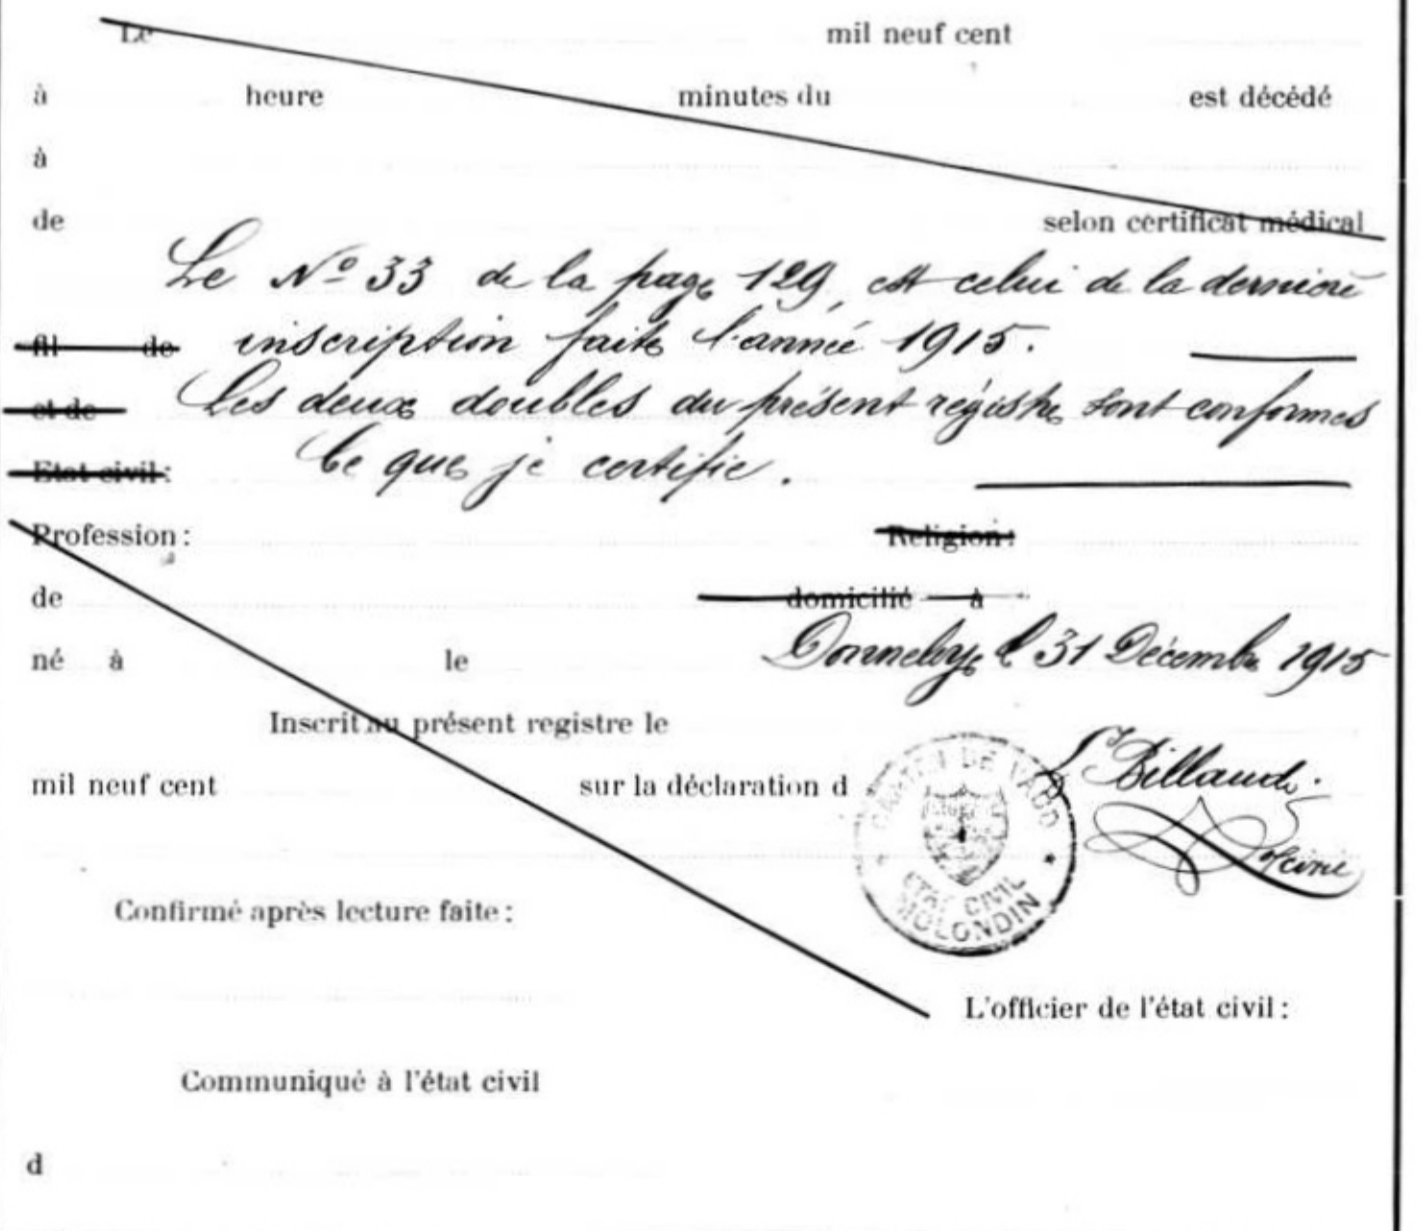 Le mil neuf cent
à heure minutes du est décédé
à
de selon certificat médical
Le Nº 33 de la page 129, est celui de la dernière
fil de inscription faite l'année 1915.
et de Les deux doubles du présent régistre sont conformes
Etat civil: Ce que je certifie.
Profession: Religion:
de domicilié à
né à le Donneloye l 31 Décembre 1915
Inscrit au présent registre le
mil neuf cent sur la déclaration d
CANTON DE VAUD
Billaud
ETAT CIVIL
MOLONDIN
Confirmé après lecture faite:
L'officier de l'état civil:
Communiqué à l'état civil
d